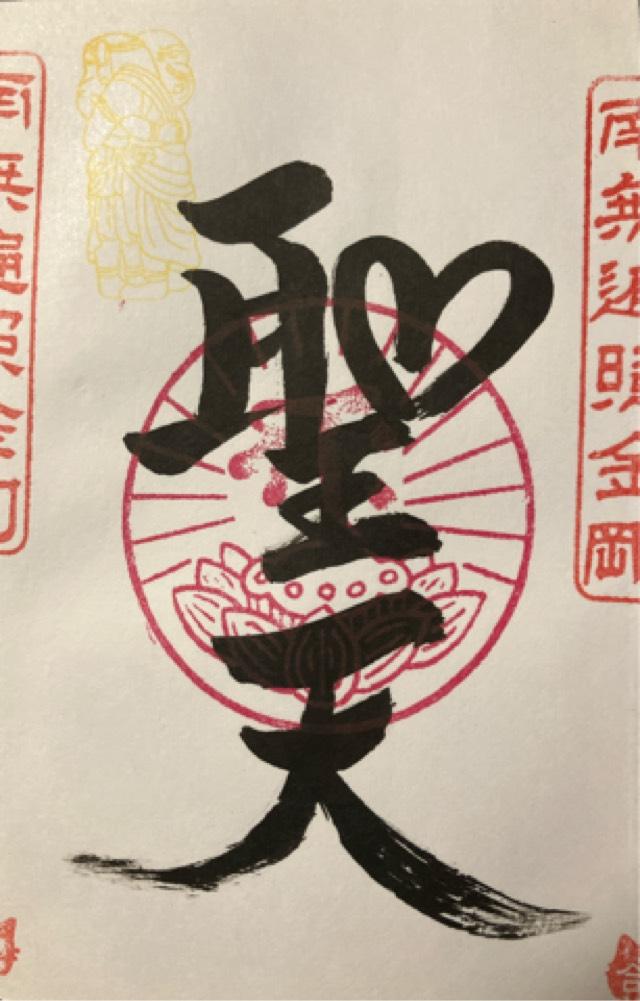 南無遍照金剛
聖天
南無遍照金剛